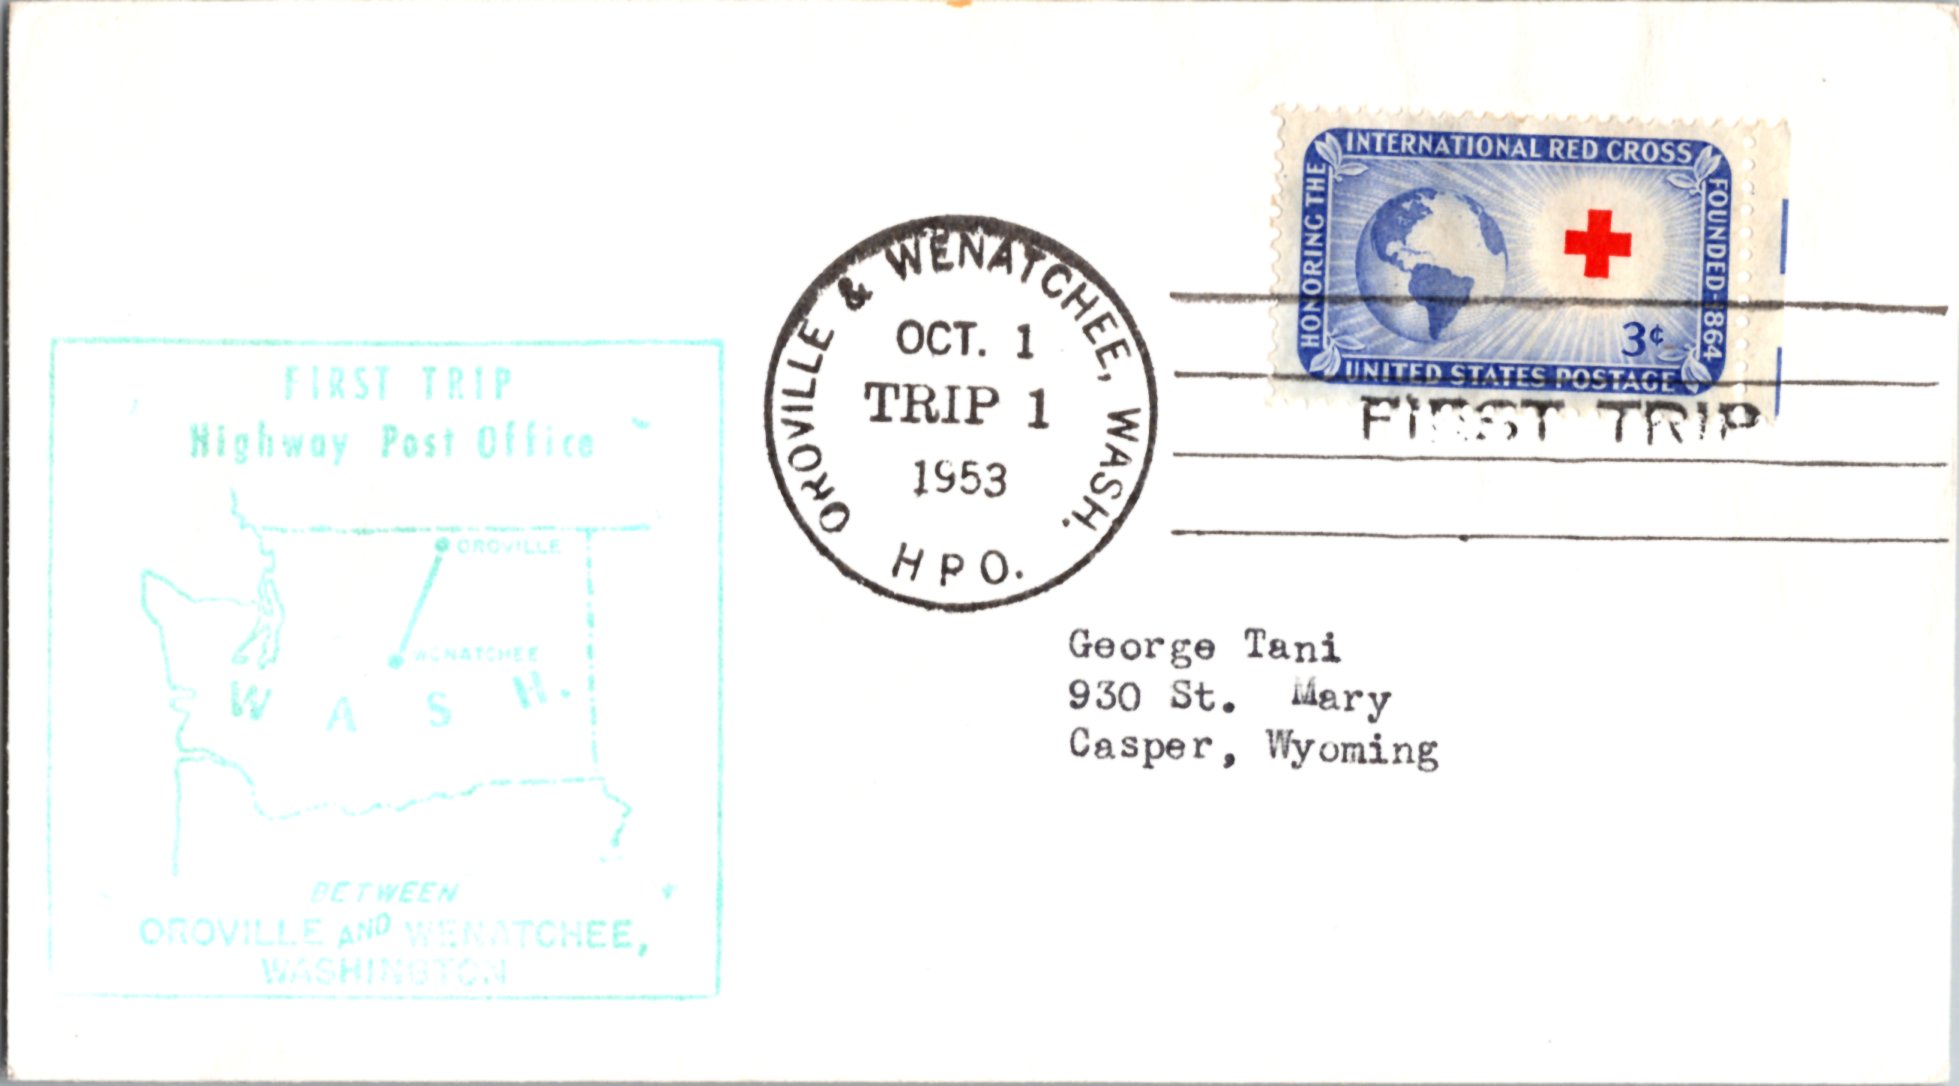 HONORING THE INTERNATIONAL RED CROSS FOUNDED-1864
3¢
UNITED STATES POSTAGE
OROVILLE & WENATCHEE, WASH.
OCT. 1
TRIP 1
1953
H P O.
FIRST TRIP
FIRST TRIP
Highway Post Office
OROVILLE
WENATCHEE
W A S H.
BETWEEN
OROVILLE AND WENATCHEE,
WASHINGTON
George Tani
930 St. Mary
Casper, Wyoming